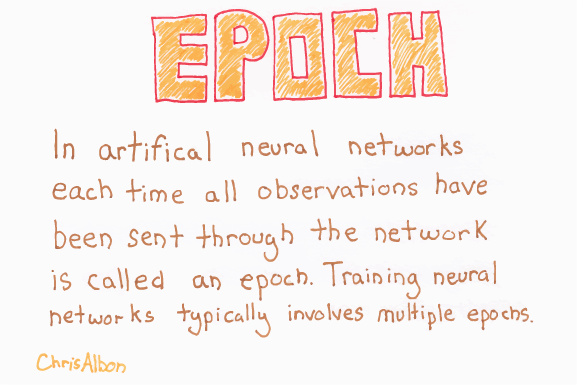 EPOCH
In artifical neural networks
each time all observations have
been sent through the network
is called an epoch. Training neural
networks typically involves multiple epochs.
ChrisAlbon